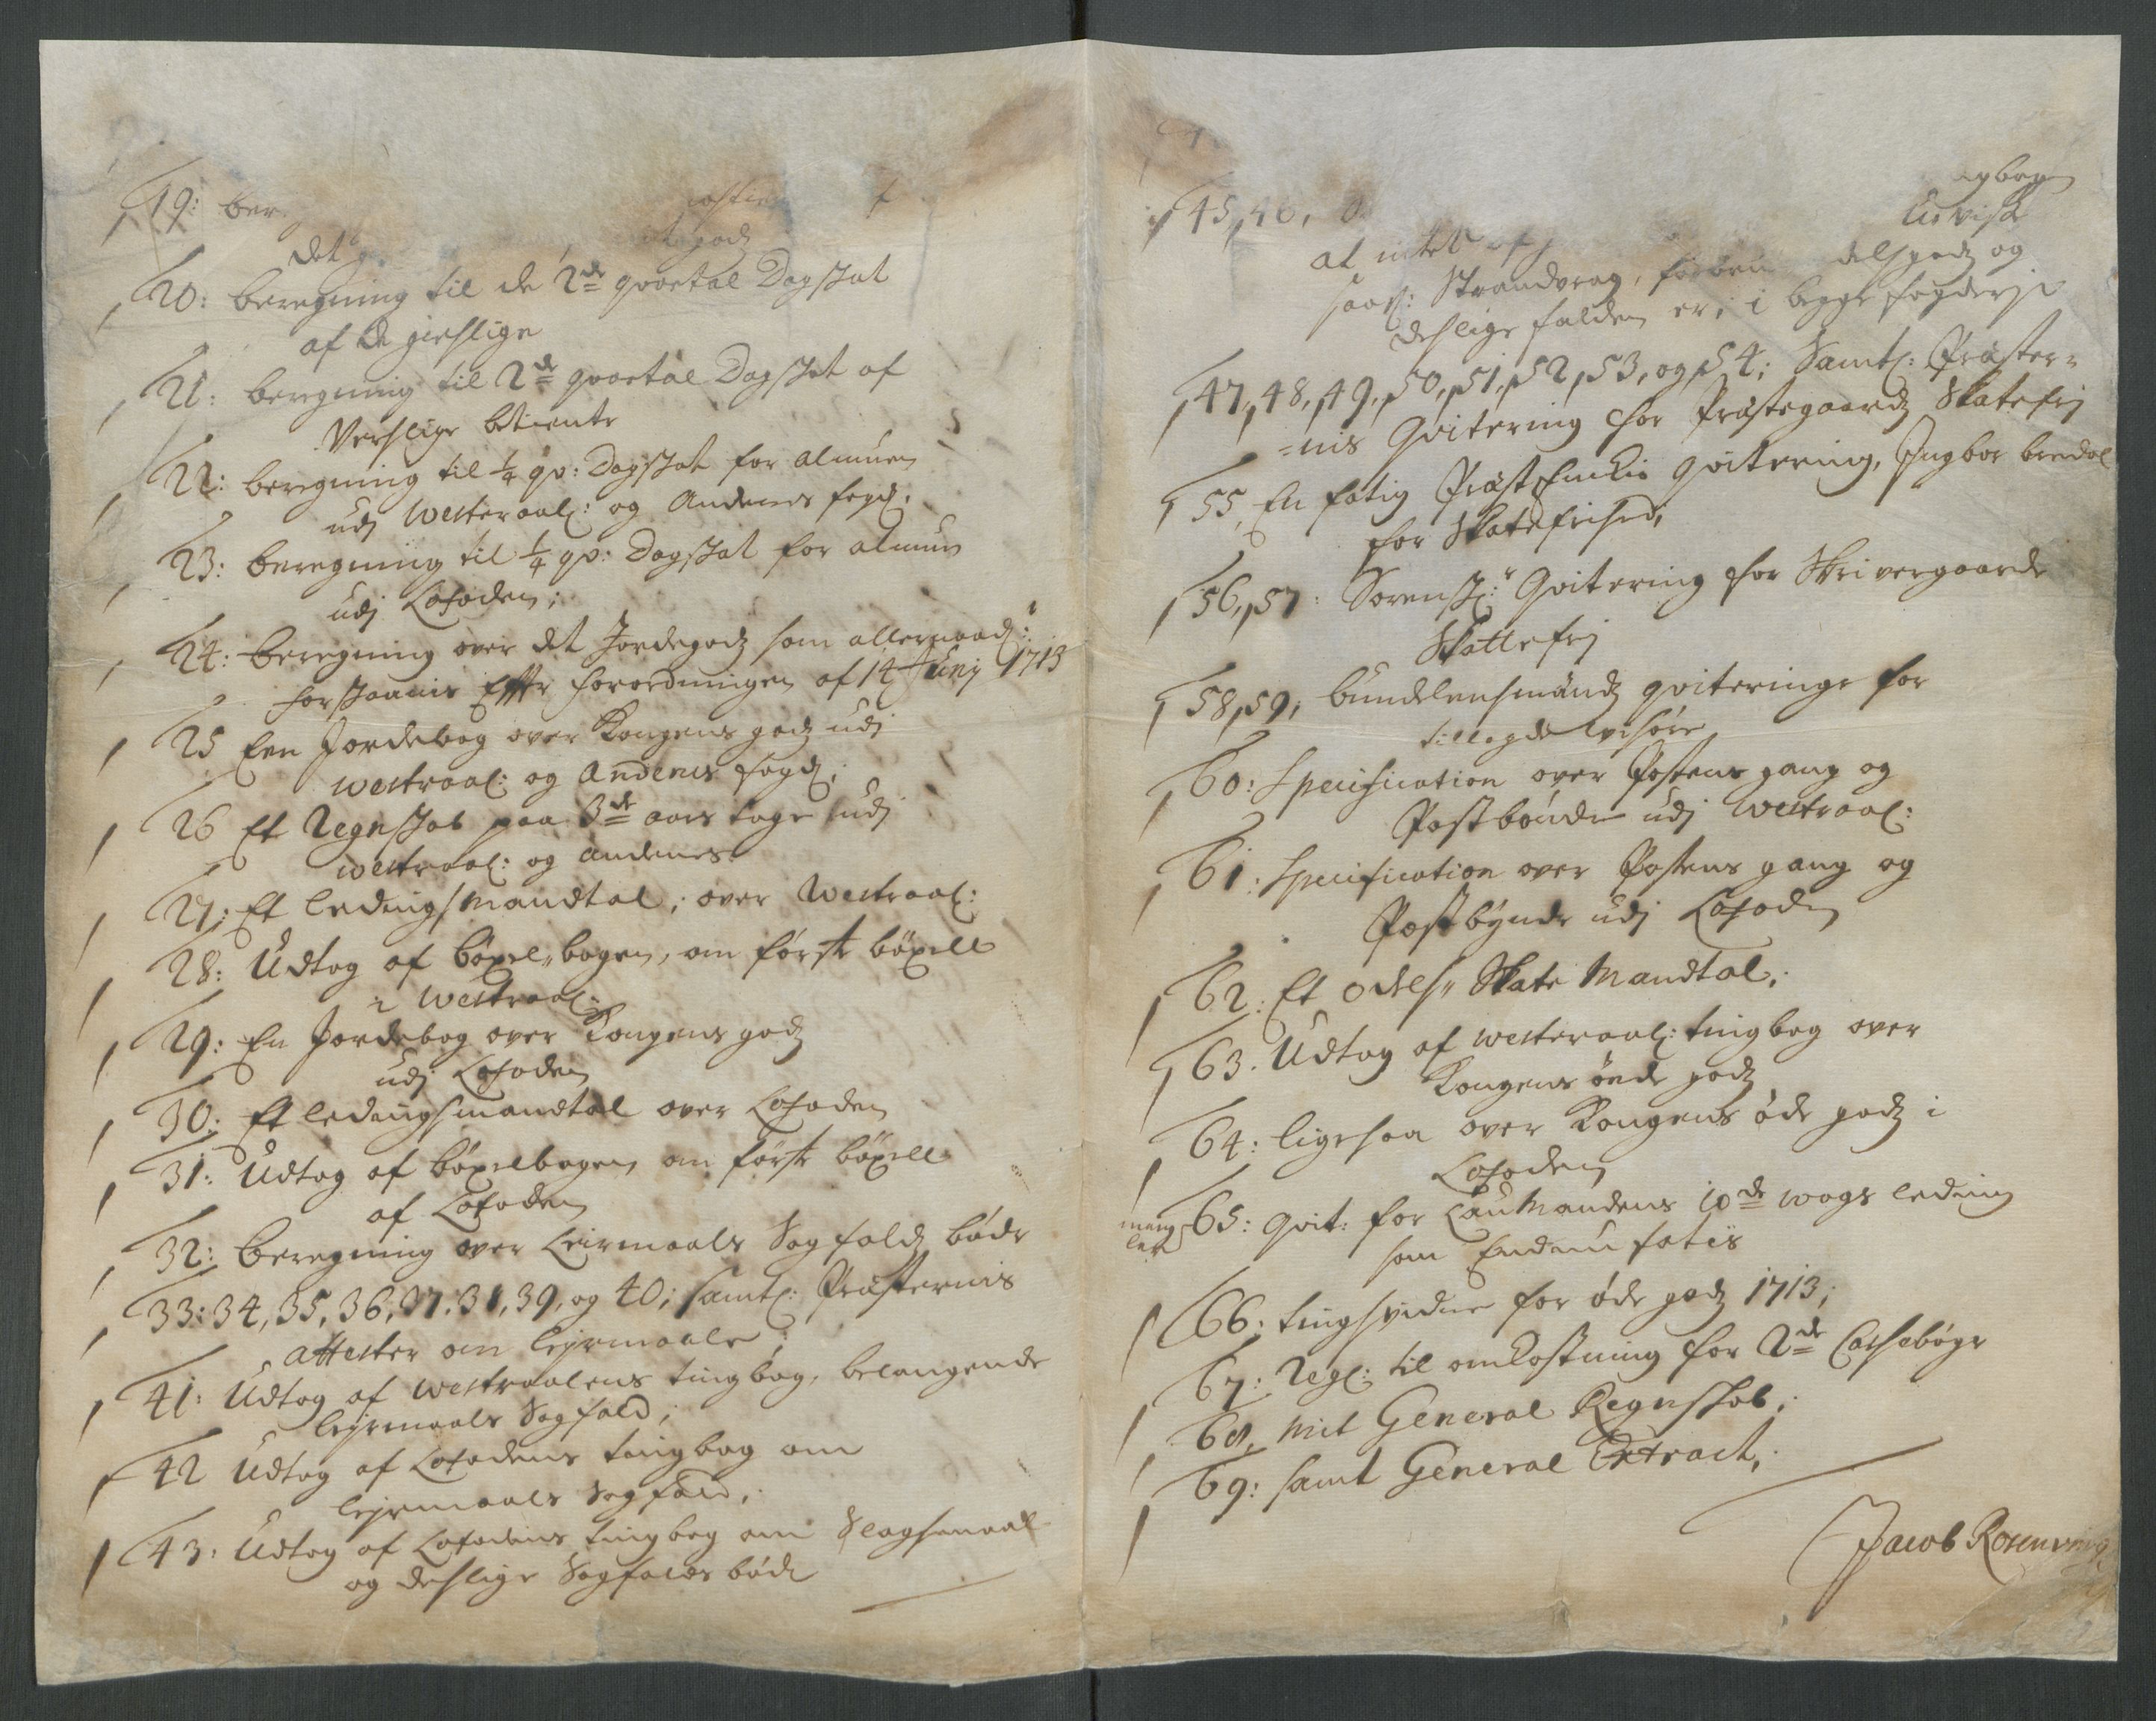 19: ber
det g godz
20: beregning til de 2de qvartal Dagskat
af de giestlige
21: beregning til 2de qvartal Dagskat af
Verslige betiente
22: beregning til 1/4 qv: Dagskat for almuen
udj Westeraal: og Andenes fogd:
23: beregning til 1/4 qv: Dagskat for almuen
udj Lofoden;
24: beregning over det Jordegodz som allernaad:
forstaanis Effter forordningen af 14 Junij 1713
25 Een Jordebog over Kongens godz udj
Westraal: og Andenes fogd:
26 Et Regnskab paa 3de aars tage udj
westraal: og andenes
27: Et ledings mandtal; over Westraal:
28: Udtog af böxel-bogen, om förste böxell
i Westraal:
29: En Jordebog over Kongens godz
udj Lofoden
30: Et ledingsmandtal over Lofoden
31: Udtog af böxelbogen om förste böxell
af Lofoden
32: beregning over Leirmaals Sagfaldz bøder
33: 34, 35, 36, 37, 38, 39, og 40; samtl: Præsternis
attester om leyrmaale;
41: Udtog af Westraalens tingbog, belangende
leyrmaals Sagfald;
42 Udtog af Lofodens tingbog om
leyrmaals Sagfald;
43: Udtog af Lofodens tingbog om Slagsmaal
og deslige Sagfalds bøder
45, 46, ingbogen
Udvist
at intet af
saas: Strandvrag, delsgodz og
deslige falden er; i begge fogderje
47, 48, 49, 50, 51, 52, 53, og 54; Samtl: Præster-
-nis Qvitering for Præstegaardz Skatefrj
55, En fatig Præst Enkis qvitering, Ingbor bredal
for Skatefrihed;
56, 57: Sorensk: Qvitering for Skrivergaarde
Skattefrj
58, 59; bundelensmændz qviteringe for
tillagde
60: Specification over Postens gang og
Postbønder udj Westraal:
61: Specification over Postens gang og
Postbynder udj Lofoden
62: Et odels Skate Mandtal;
63. Udtog af westeraal: tingbog over
Kongens öede godz
64: ligesaa over Kongens öde godz i
Lofoden
mang
ler 65: qvit: for Laumandens 10de wogs leding
som Endnu
66: tingsvidne for öde godz 1713;
67: Regl: til omkostning for 2de Cassebøger
68, mit General Regnskab;
69: samt General Extract;
Jacob Rosenving